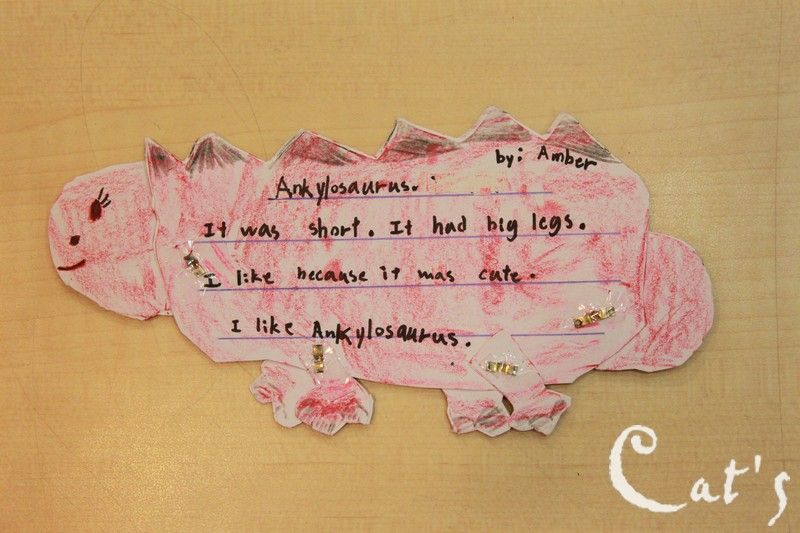 by: Amber
Ankylosaurus.
It was short. It had big legs.
I like because it mas cute.
I like Ankylosaurus.
Cat's